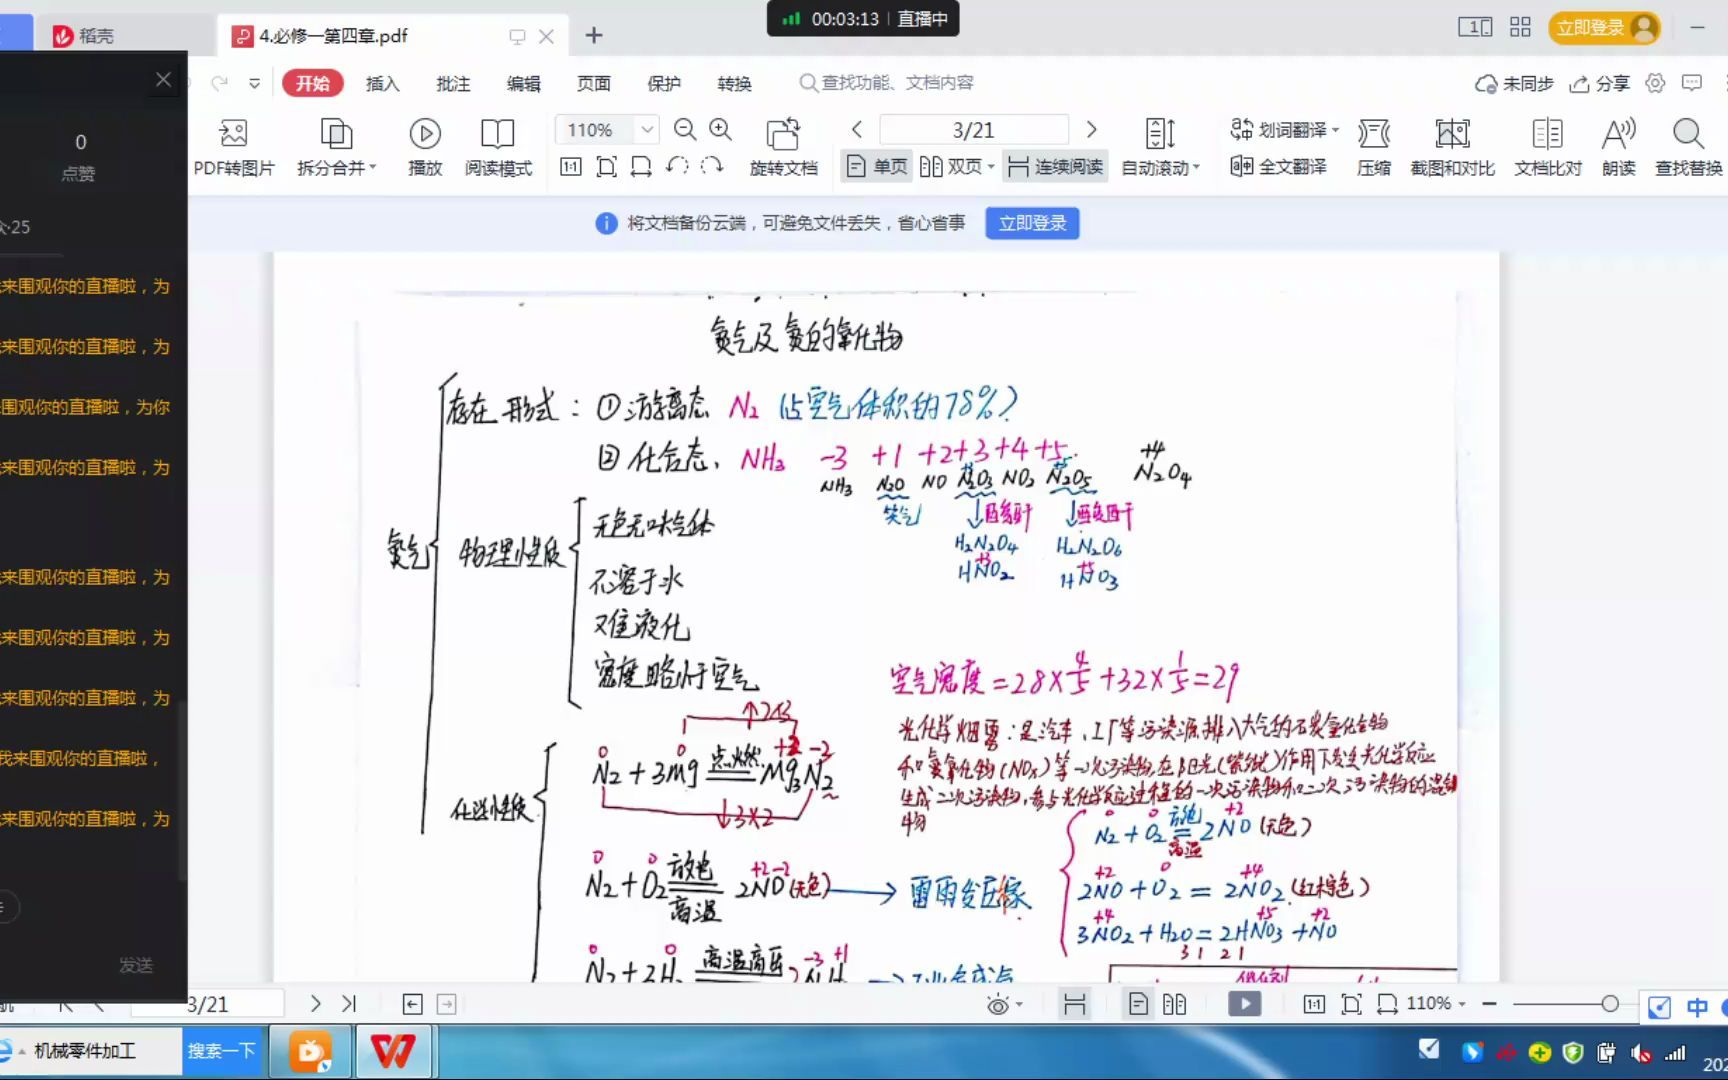 00:03:13 直播中
稻壳
4.必修一第四章.pdf
立即登录
开始 插入 批注 编辑 页面 保护 转换 查找功能、文档内容
未同步 分享
110%
3/21
划词翻译
PDF转图片 拆分合并 播放 阅读模式 旋转文档 单页 双页 连续阅读 自动滚动 全文翻译 压缩 截图和对比 文档比对 朗读 查找替换
将文档备份云端，可避免文件丢失，省心省事 立即登录
0
点赞
·25
来围观你的直播啦，为
来围观你的直播啦，为
围观你的直播啦，为你
来围观你的直播啦，为
来围观你的直播啦，为
来围观你的直播啦，为
来围观你的直播啦，为
我来围观你的直播啦，
来围观你的直播啦，为
发送
氮气及氮的氧化物
存在形式：①游离态 N₂ 占空气体积的78%？
②化合态，NH₃ -3 +1 +2 +3 +4 +5 +4
NH₃ N₂O NO N₂O₃ NO₂ N₂O₅ N₂O₄
笑气 ↓酸酐 ↓酸酐
H₂N₂O₄ H₂N₂O₆
HNO₂ HNO₃
氮气
物理性质
无色无味气体
不溶于水
难液化
密度略小于空气
空气密度=28×4/5+32×1/5=29
光化学烟雾：是汽车、工厂等污染源排入大气的碳氢化合物
和氮氧化物(NOx)等一次污染物，在阳光(紫外光)作用下发生光化学反应
生成二次污染物，参与光化学反应过程的一次污染物和二次污染物的混合
物
化学性质
↑2×3
N₂+3Mg 点燃 Mg₃N₂
↓3×2
N₂+O₂ 放电 高温 2NO(无色) → 雷雨发庄稼
N₂+O₂ 放电 高温 2NO (无色)
2NO+O₂=2NO₂ (红棕色)
3NO₂+H₂O=2HNO₃+NO
3 1 2 1
高温高压
3/21
110%
机械零件加工 搜索一下
中